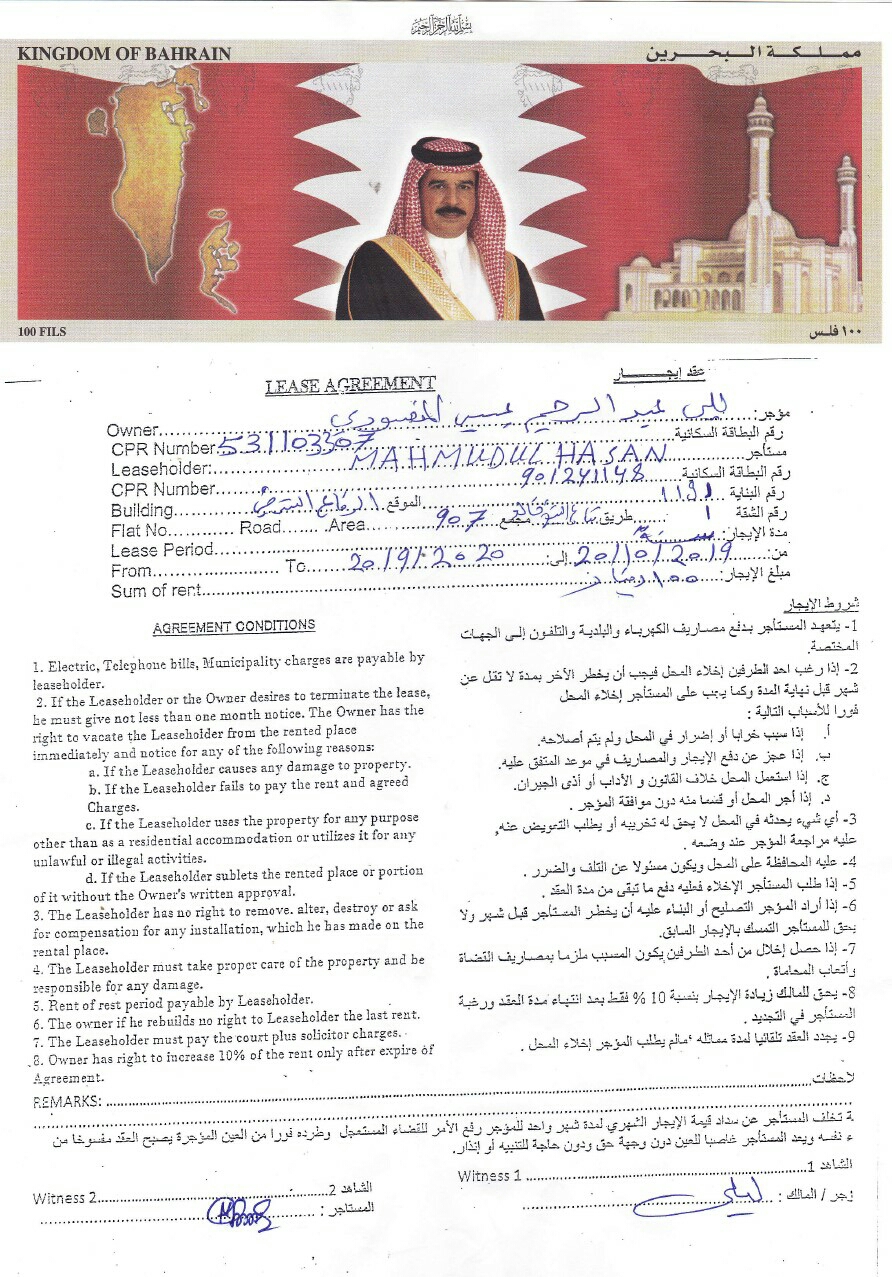 بسم الله الرحمن الرحيم
KINGDOM OF BAHRAIN
مملكة البحرين
100 FILS
١٠٠ فلس
LEASE AGREEMENT
عقد إيجار
Owner
مؤجر: عبد الرحيم عيسى
CPR Number 531103307
رقم البطاقة السكانية
Leaseholder: MAHMUDUL HASAN
مستأجر
CPR Number 901241148
رقم البطاقة السكانية
Building
رقم البناية ١١٩١ الموقع الرفاع الشرقي
Flat No. Road Area 907
رقم الشقة ١ طريق مجمع
Lease Period
مدة الإيجار: سنة
From To 20/9/2020
من: 20/10/2019 إلى:
Sum of rent
مبلغ الإيجار: ١٠٠ دينار
AGREEMENT CONDITIONS
1. Electric, Telephone bills, Municipality charges are payable by
leaseholder.
2. If the Leaseholder or the Owner desires to terminate the lease,
he must give not less than one month notice. The Owner has the
right to vacate the Leaseholder from the rented place
immediately and notice for any of the following reasons:
a. If the Leaseholder causes any damage to property.
b. If the Leaseholder fails to pay the rent and agreed
Charges.
c. If the Leaseholder uses the property for any purpose
other than as a residential accommodation or utilizes it for any
unlawful or illegal activities.
d. If the Leaseholder sublets the rented place or portion
of it without the Owner's written approval.
3. The Leaseholder has no right to remove. alter, destroy or ask
for compensation for any installation, which he has made on the
rental place.
4. The Leaseholder must take proper care of the property and be
responsible for any damage.
5. Rent of rest period payable by Leaseholder.
6. The owner if he rebuilds no right to Leaseholder the last rent.
7. The Leaseholder must pay the court plus solicitor charges.
8. Owner has right to increase 10% of the rent only after expire of
Agreement.
شروط الإيجار
1- يتعهد المستأجر بدفع مصاريف الكهرباء والبلدية والتلفون إلى الجهات
المختصة.
2- إذا رغب احد الطرفين إخلاء المحل فيجب أن يخطر الآخر بمدة لا تقل عن
شهر قبل نهاية المدة وكما يجب على المستأجر إخلاء المحل
فورا للأسباب التالية :
أ. إذا سبب خرابا أو إضرار في المحل ولم يتم أصلاحه.
ب. إذا عجز عن دفع الإيجار والمصاريف في موعد المتفق عليه.
ج. إذا استعمل المحل خلاف القانون و الآداب أو أذى الجيران.
د. إذا أجر المحل أو قسما منه دون موافقة المؤجر .
3- أي شيء يحدثه في المحل لا يحق له تخريبه أو يطلب التعويض عنه,
عليه مراجعة المؤجر عند وضعه .
4- عليه المحافظة على المحل ويكون مسئولا عن التلف والضرر .
5- إذا طلب المستأجر الإخلاء فعليه دفع ما تبقى من مدة العقد .
6- إذا أراد المؤجر التصليح أو البناء عليه أن يخطر المستأجر قبل شهر ولا
يحق للمستأجر التمسك بالإيجار السابق.
7- إذا حصل إخلال من أحد الطرفين يكون المسبب ملزما بمصاريف القضاة
وأتعاب المحاماة .
8- يحق للمالك زيادة الإيجار بنسبة 10 % فقط بعد انتهاء مدة العقد ورغبة
المستأجر في التجديد .
9- يجدد العقد تلقائيا لمدة مماثله ‘مالم يطلب المؤجر إخلاء المحل .
REMARKS:
لاحظات
ة تخلف المستأجر عن سداد قيمة الإيجار الشهري لمدة شهر واحد للمؤجر رفع الأمر للقضاء المستعجل وطرده فورا من العين المؤجرة يصبح العقد مفسوخا من
ء نفسه ويعد المستأجر غاصبا للعين دون وجهة حق ودون حاجة للتنبيه أو إنذار.
Witness 1
الشاهد 1
Witness 2
الشاهد 2
المستأجر :
ؤجر / المالك : ليلى